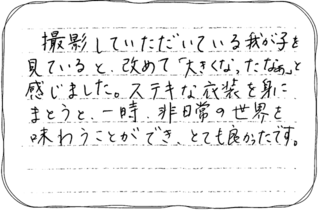 撮影していただいている我が子を
見ていると、改めて「大きくなったなぁ」と
感じました。ステキな衣装を身に
まとうと、一時、非日常の世界を
味わうことができ、とても良かったです。